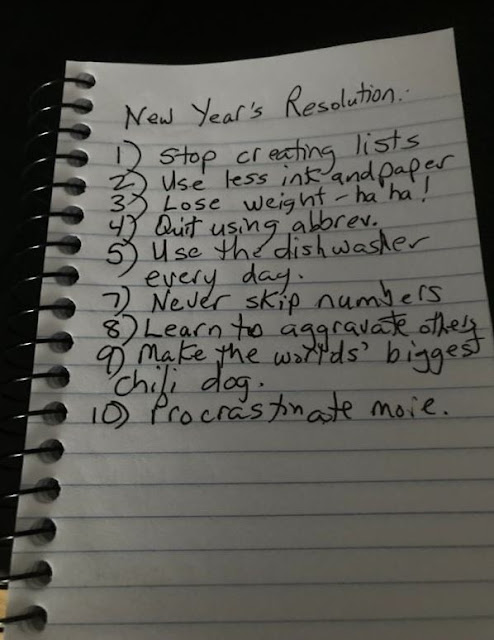 New Year's Resolution:
1) Stop creating lists
2) Use less ink and paper
3) Lose weight - ha ha!
4) Quit using abbrev.
5) Use the dishwasher
every day.
7) Never skip numbers
8) Learn to aggravate others
9) Make the worlds' biggest
chili dog.
10) Procrastinate more.